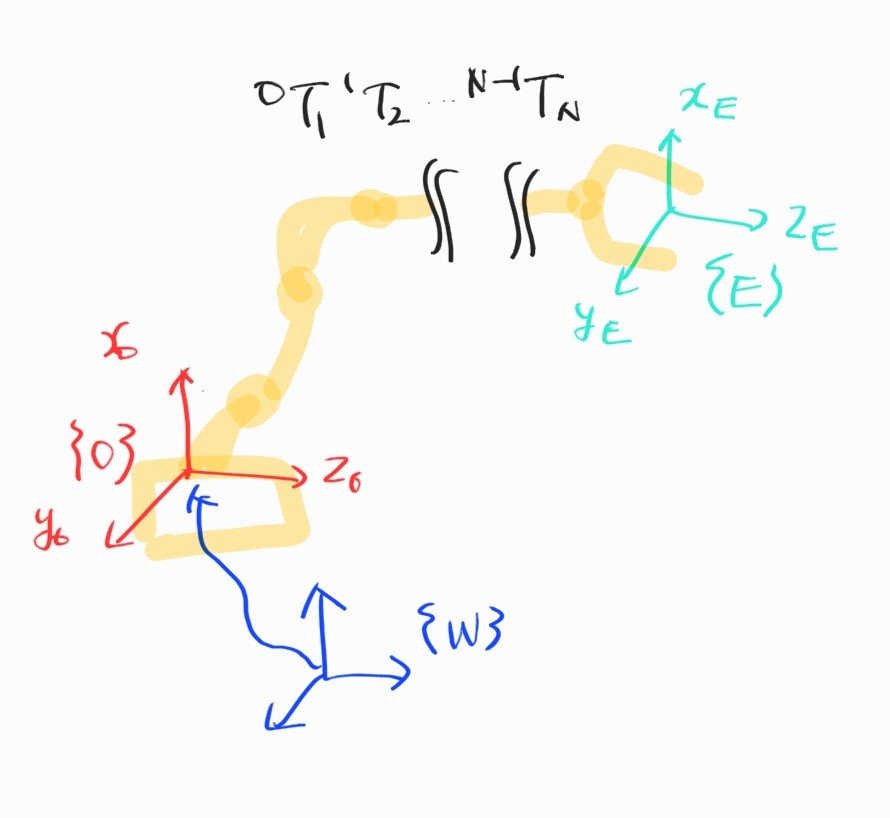 ⁰T₁ ¹T₂ ... ᴺ⁻¹T_N
x_E
z_E
{E}
y_E
x₀
{0}
z₀
y₀
{W}